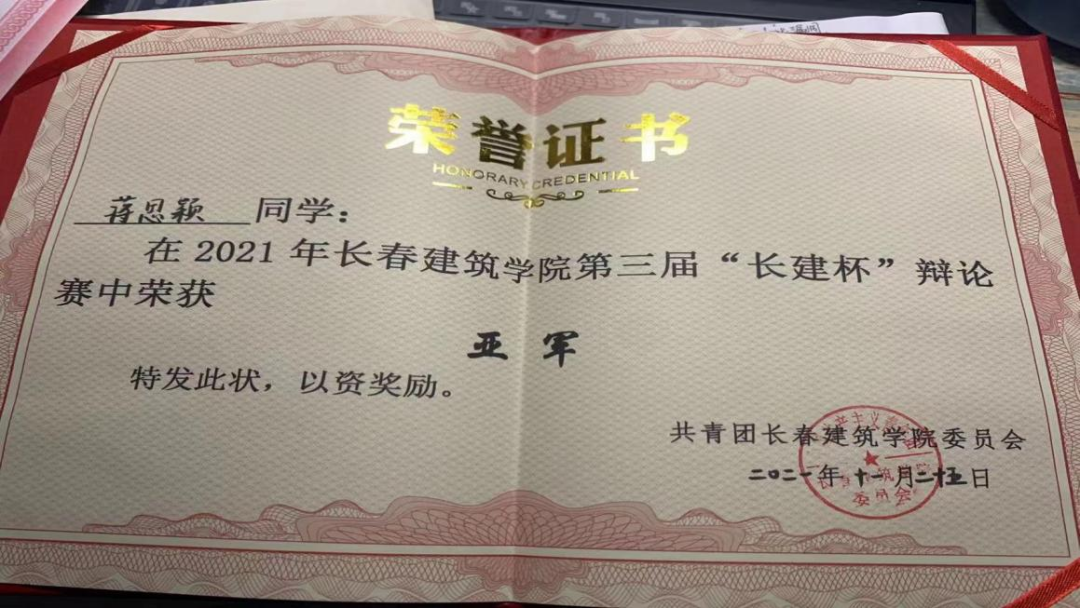 荣誉证书
HONORARY CREDENTIAL
蒋思颖 同学：
在2021年长春建筑学院第三届“长建杯”辩论
赛中荣获
亚军
特发此状，以资奖励。
共青团长春建筑学院委员会
二〇二一年十一月二十五日
委员会